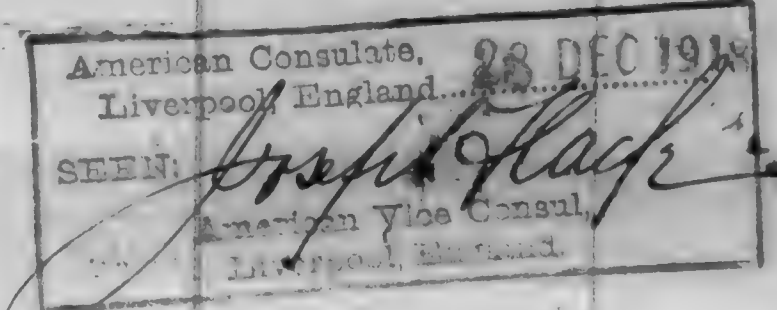 American Consulate,
Liverpool, England....28 DEC 1918
SEEN: Joseph Flack
American Vice Consul,
Liverpool, England.